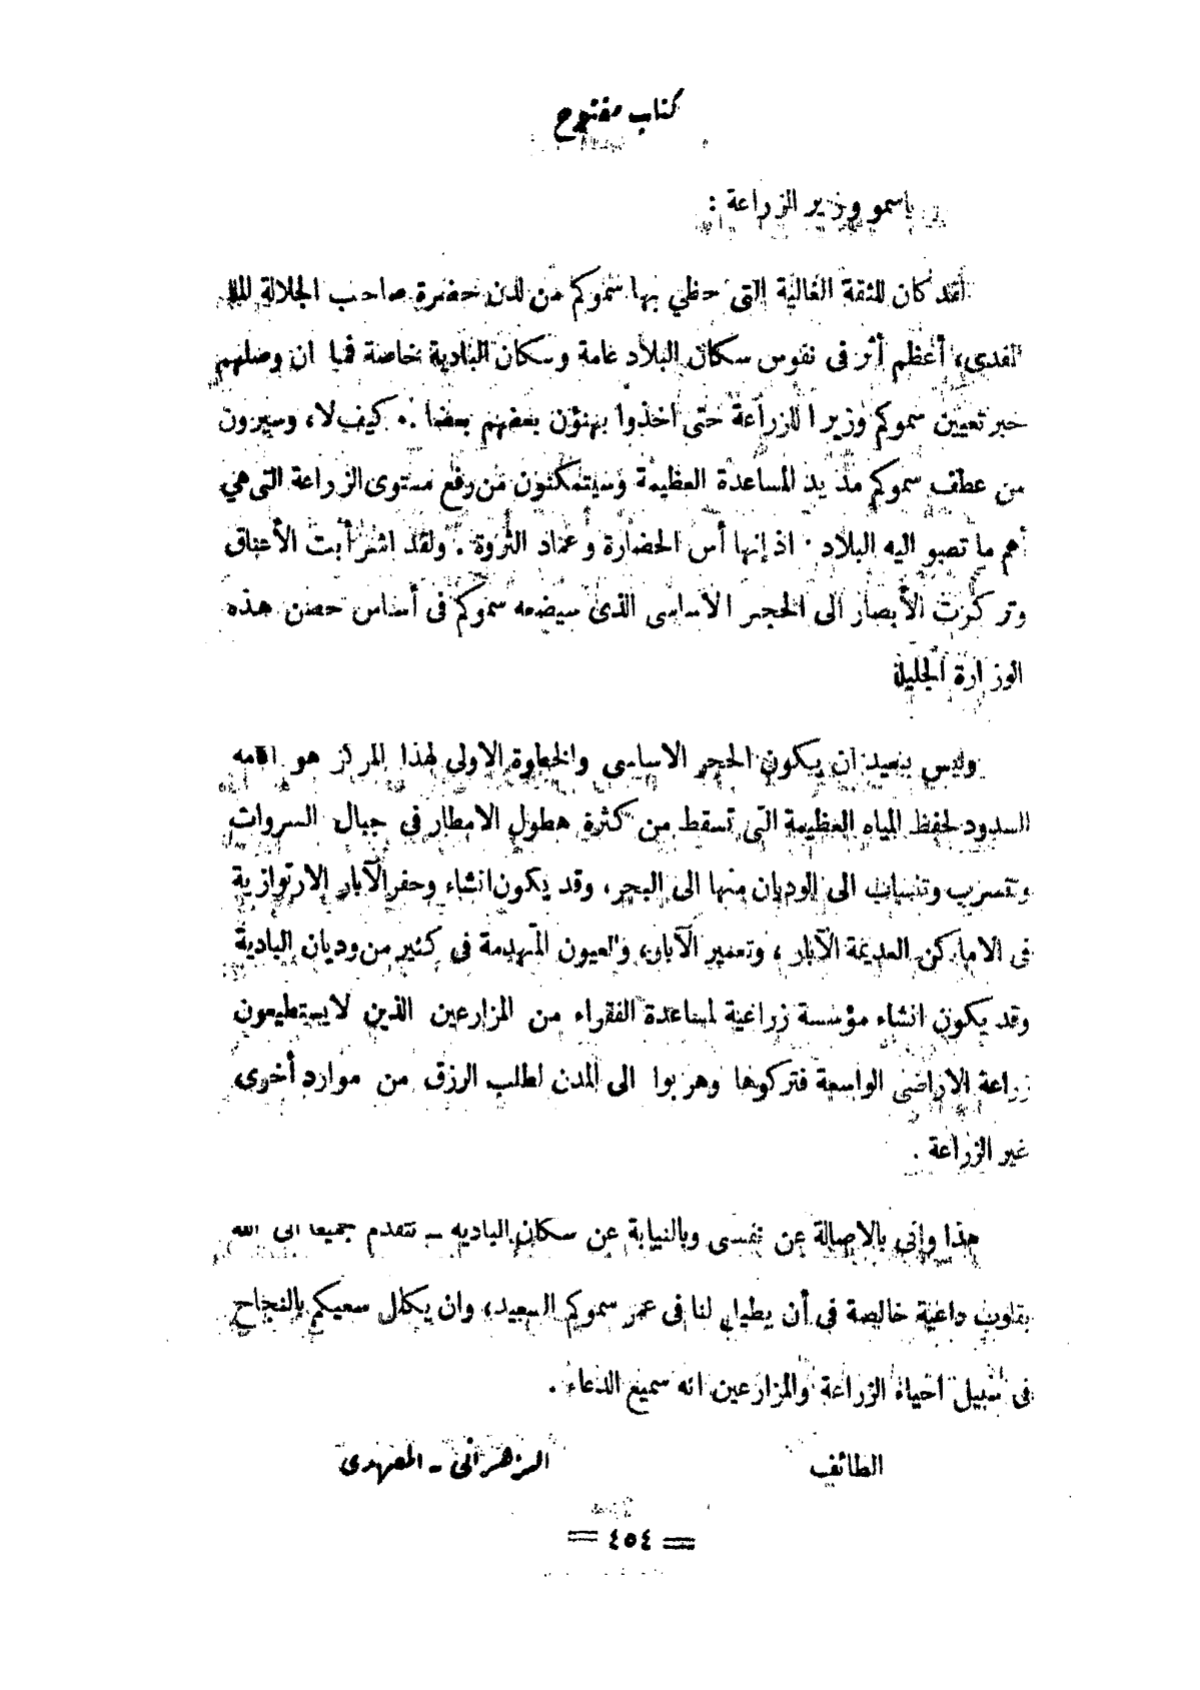 كتاب مفتوح
ياسمو وزير الزراعة :
لقد كان للثقة الغالية التى حظي بها سموكم من لدن حضرة صاحب الجلالة الملك
المفدى، أعظم أثر فى نفوس سكان البلاد عامة وسكان البادية بخاصة فما ان وصلهم
خبر تعيين سموكم وزيرا للزراعة حتى اخذوا يهنؤن بعضهم بعضا . كيف لا، وسيرون
من عطف سموكم مد يد المساعدة العظيمة وسيتمكنون من رفع مستوى الزراعة التى هي
أهم ما تصبو اليه البلاد . اذ إنها أس الحضارة وعماد الثروة . ولقد اشرأبت الأعناق
وتركزت الأبصار الى الحجر الاساسى الذى سيضعه سموكم فى أساس حصن هذه
الوزارة الجليلة
وليس ببعيد ان يكون الحجر الاساسى والخطوة الاولى لهذا المركز هو اقامه
السدود لحفظ المياه العظيمة التى تسقط من كثرة هطول الامطار فى جبال السروات
وتتسرب وتنساب الى الوديان منها الى البحر، وقد يكون انشاء وحفر الآبار الارتوازية
فى الاماكن العديمة الآبار ، وتعمير الآبار، والعيون المتهدمة فى كثير من وديان البادية
وقد يكون انشاء مؤسسة زراعية لمساعدة الفقراء من المزارعين الذين لايستطيعون
زراعة الاراضى الواسعة فتركوها وهربوا الى المدن لطلب الرزق من موارد أخرى
غير الزراعة .
هذا وانى بالاصالة عن نفسى وبالنيابة عن سكان الباديه ــ نتقدم جميعا الى الله
بقلوب داعية خالصة فى أن يطيل لنا فى عمر سموكم السعيد، وان يكلل سعيكم بالنجاح
فى سبيل احياء الزراعة والمزارعين انه سميع الدعاء .
الطائف الزهرانى ــ المعهدى
= ٤٥٤ =